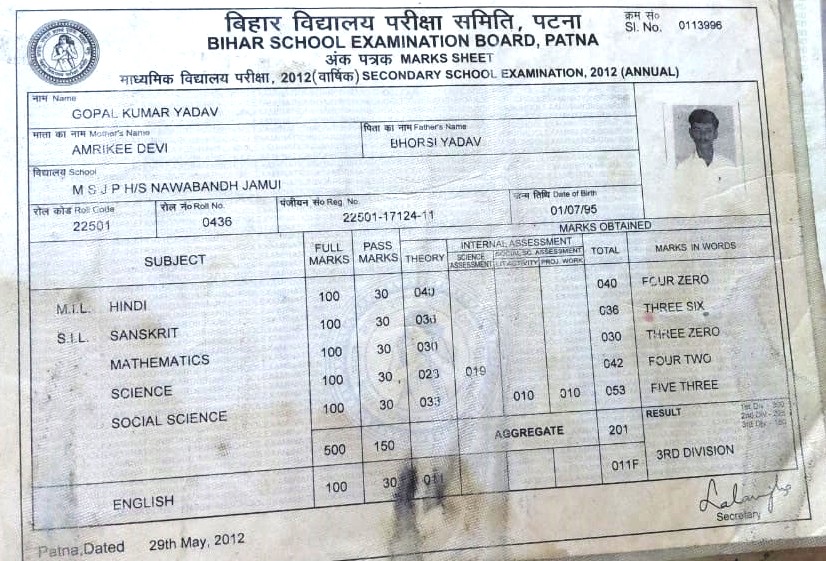 बिहार विद्यालय परीक्षा समिति, पटना
क्रम सं०
Sl. No. 0113996
BIHAR SCHOOL EXAMINATION BOARD, PATNA
अंक पत्रक MARKS SHEET
माध्यमिक विद्यालय परीक्षा, 2012(वार्षिक) SECONDARY SCHOOL EXAMINATION, 2012 (ANNUAL)
नाम Name
GOPAL KUMAR YADAV
माता का नाम Mother's Name पिता का नाम Father's Name
AMRIKEE DEVI BHORSI YADAV
विद्यालय School
M S J P H/S NAWABANDH JAMUI
रोल कोड Roll Code रोल नं० Roll No. पंजीयन सं० Reg. No. जन्म तिथि Date of Birth
22501 0436 22501-17124-11 01/07/95
MARKS OBTAINED
SUBJECT FULL MARKS PASS MARKS THEORY INTERNAL ASSESSMENT TOTAL MARKS IN WORDS
SCIENCE ASSESSMENT SOCIAL SC. ASSESSMENT
LIT.ACTIVITY PROJ. WORK
M.I.L. HINDI 100 30 040 040 FOUR ZERO
S.I.L. SANSKRIT 100 30 036 036 THREE SIX
MATHEMATICS 100 30 030 030 THREE ZERO
SCIENCE 100 30 023 019 042 FOUR TWO
SOCIAL SCIENCE 100 30 033 010 010 053 FIVE THREE
500 150 AGGREGATE 201 RESULT
1st Div - 300
2nd Div - 225
3rd Div - 150
3RD DIVISION
ENGLISH 100 30 011 011F
Secretary
Patna,Dated 29th May, 2012